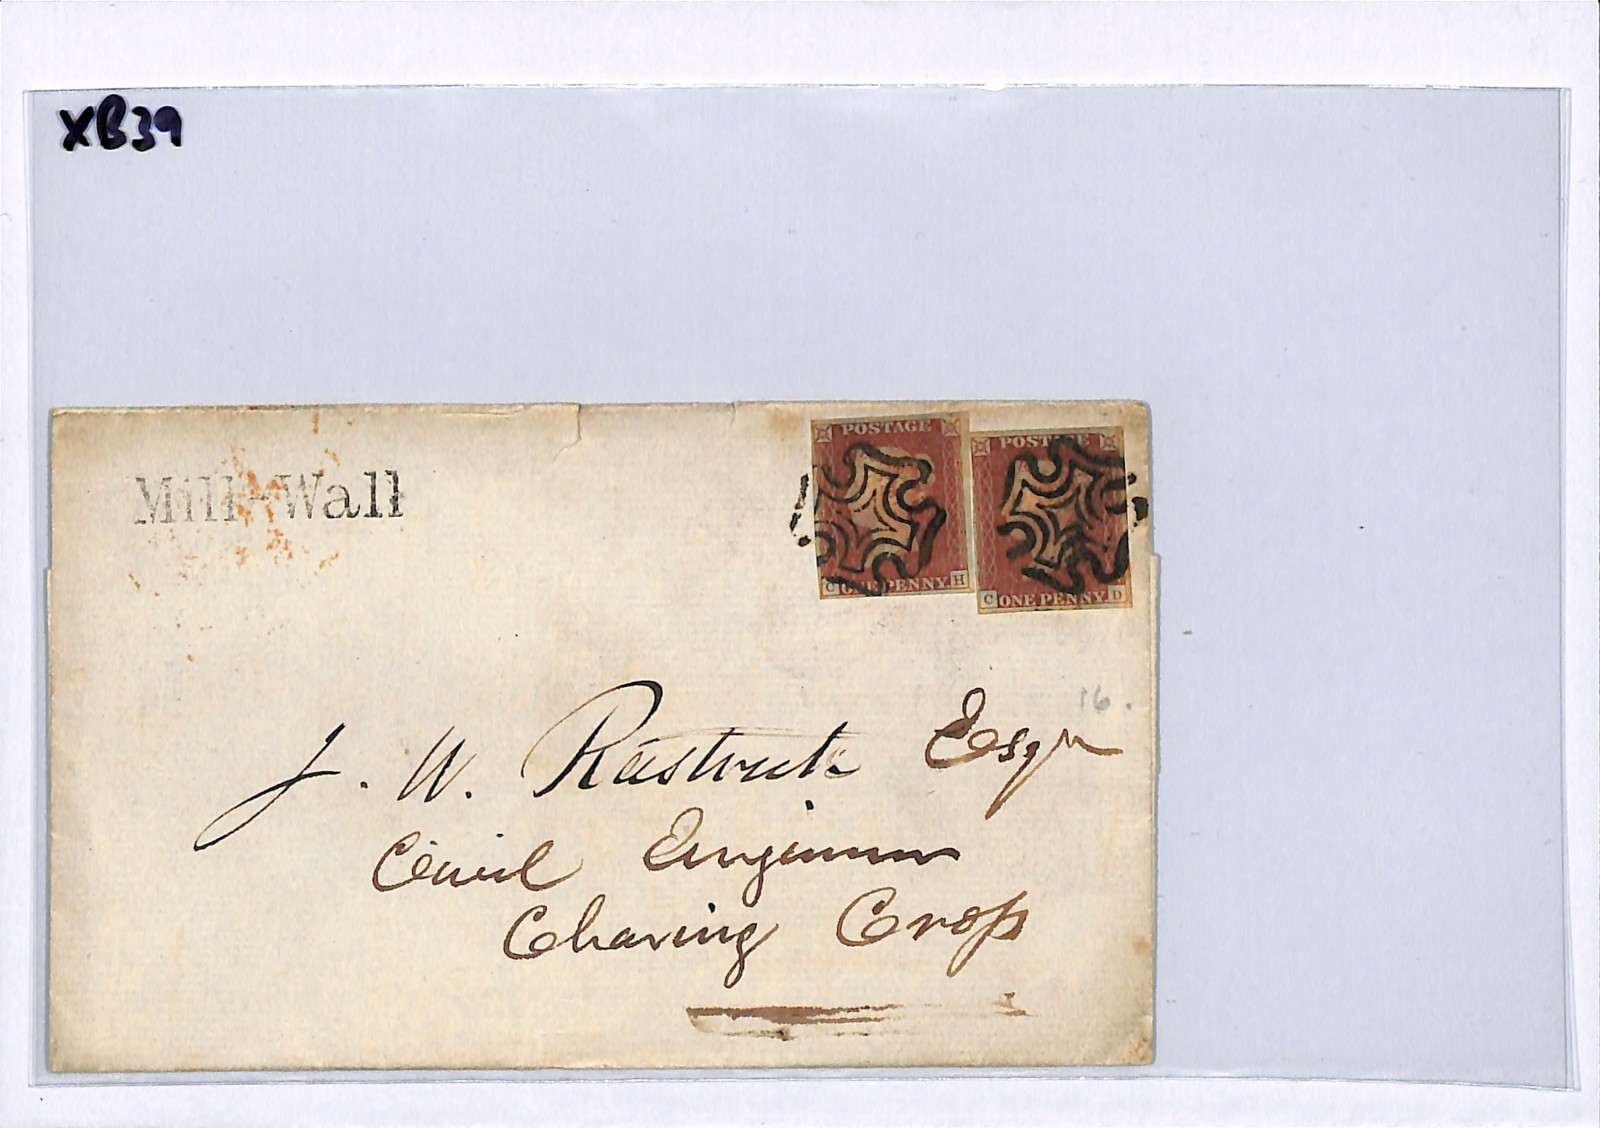 XB39
Mill-Wall
POSTAGE
C ONE PENNY H
POSTAGE
C ONE PENNY D
16.
J. W. Rastrick Esqr
Civil Engineer
Charing Cross